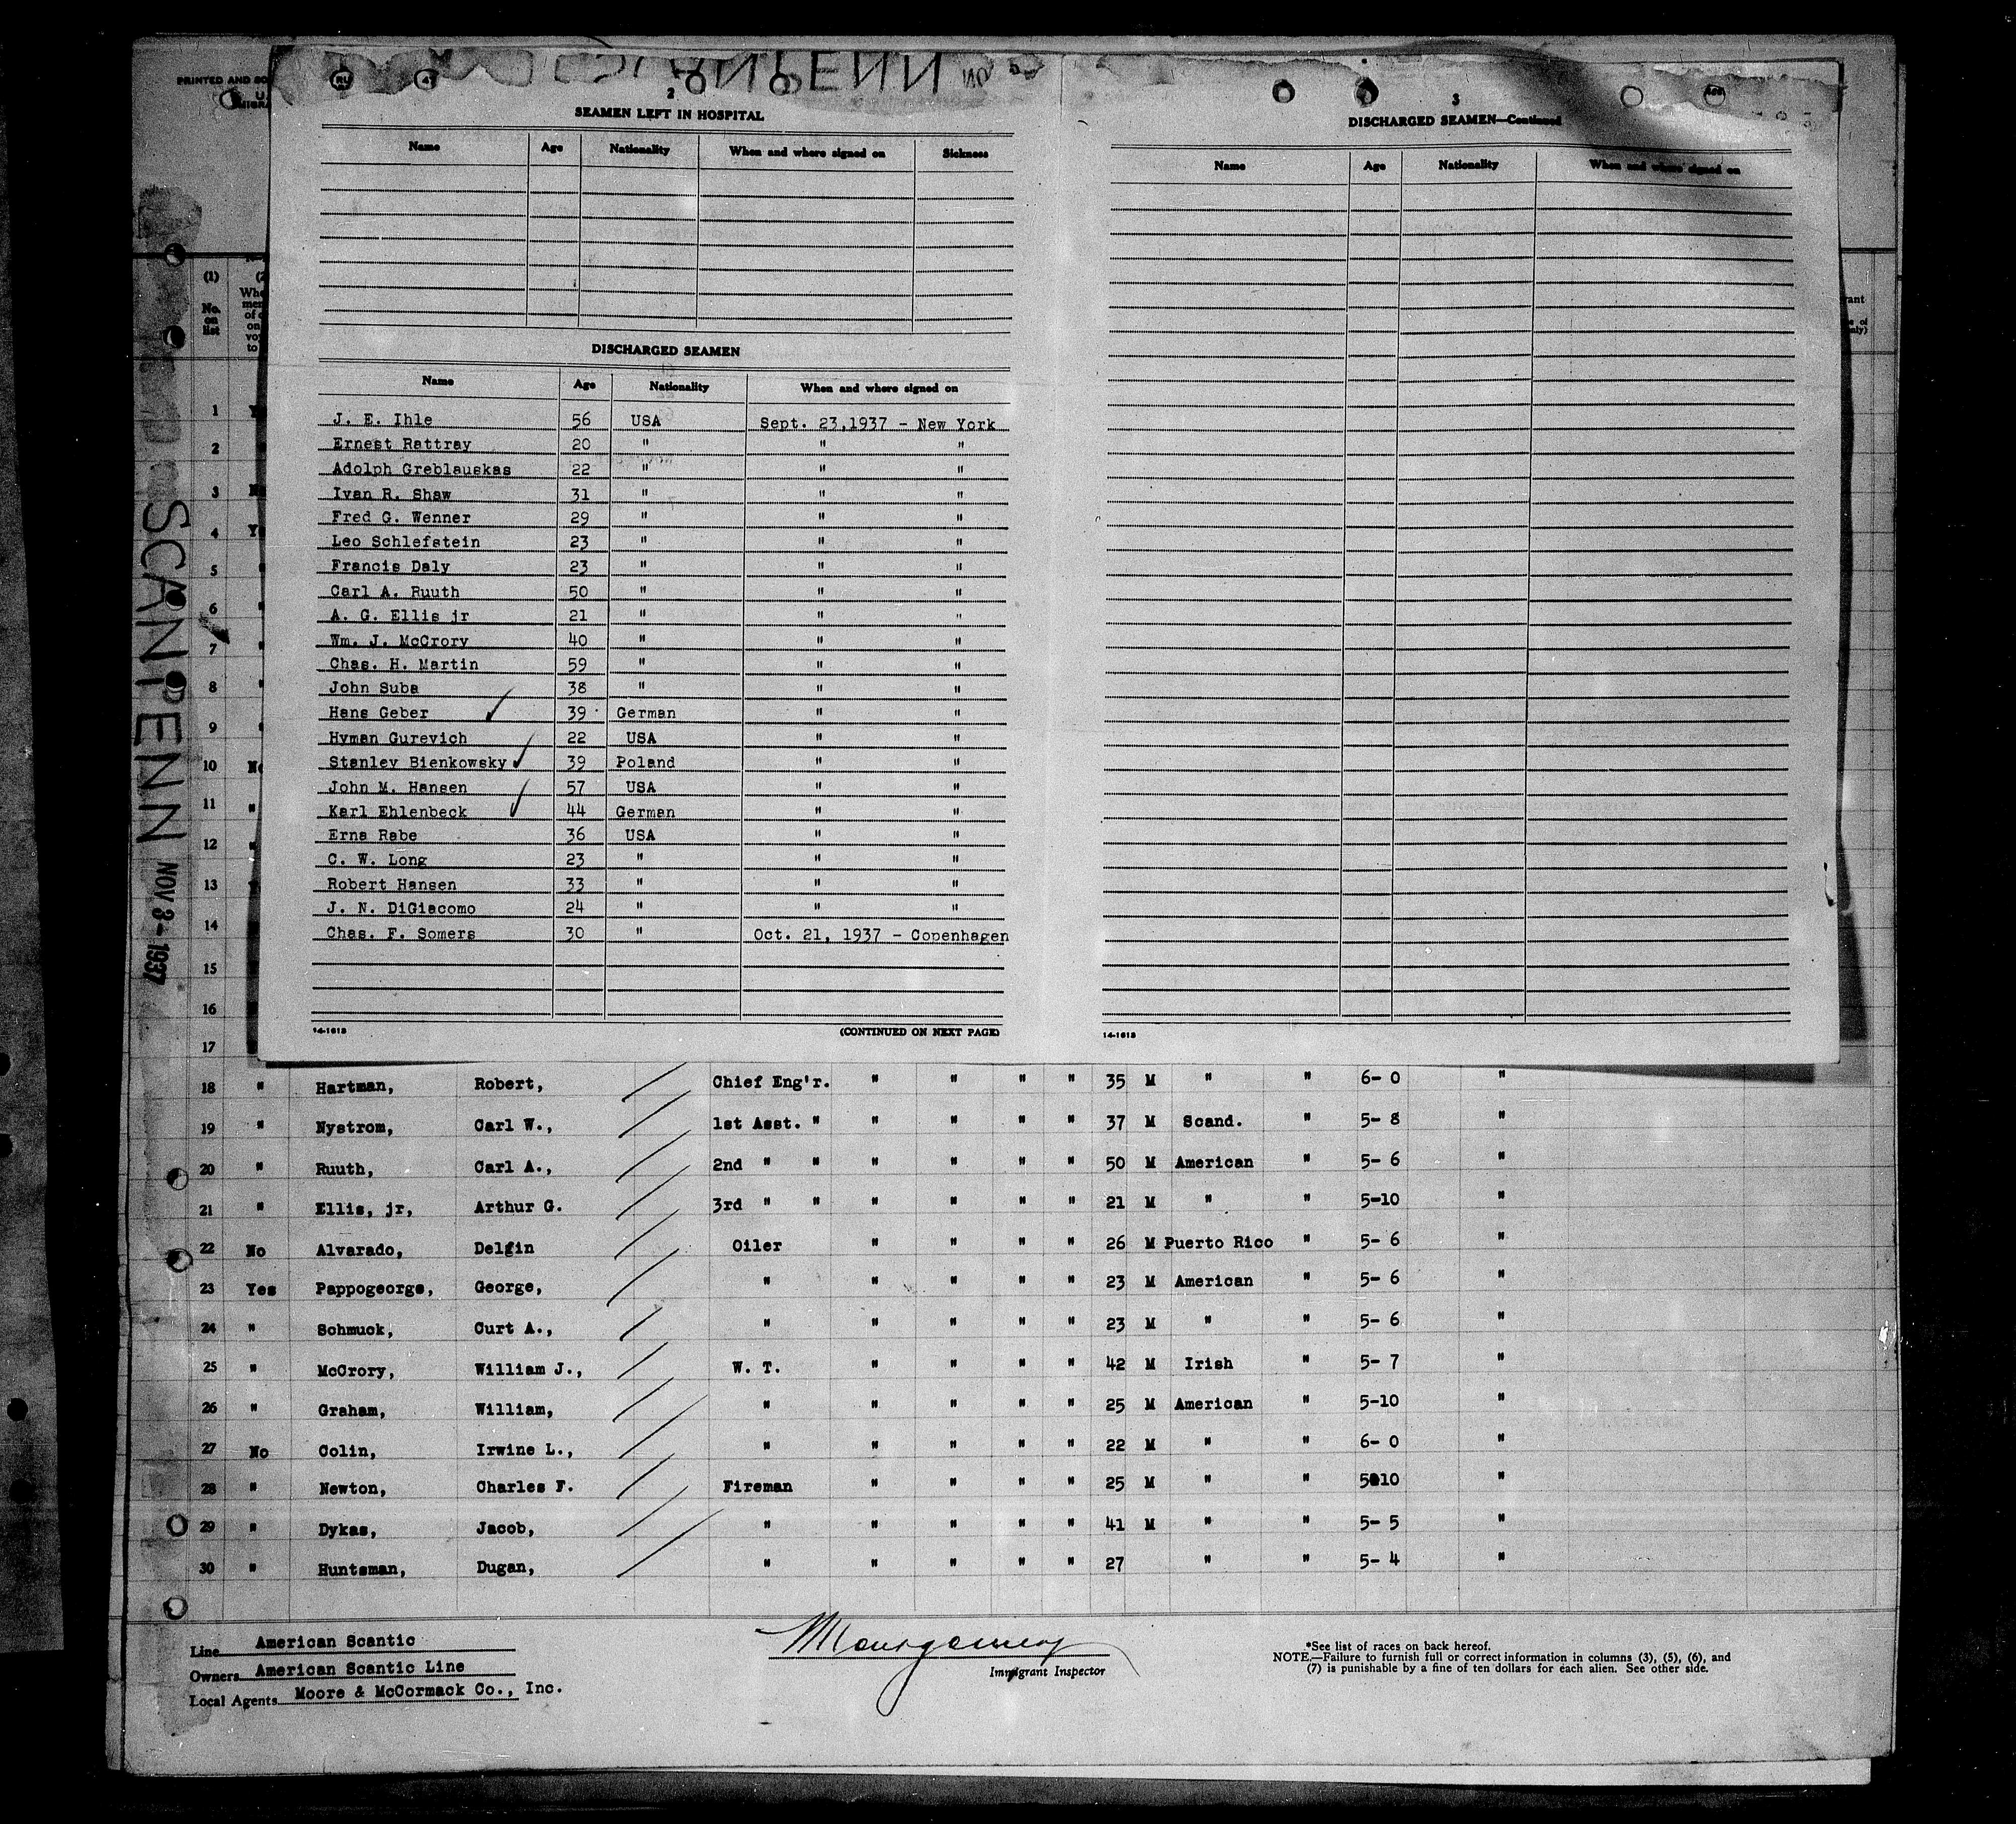 PRINTED AND SO
U.
MIGRA
SCANPENN
2
SEAMEN LEFT IN HOSPITAL
Name Age Nationality When and where signed on Sickness
DISCHARGED SEAMEN
Name Age Nationality When and where signed on
J. E. Ihle 56 USA Sept. 23,1937 - New York
Ernest Rattray 20 " " "
Adolph Greblauskas 22 " " "
Ivan R. Shaw 31 " " "
Fred G. Wenner 29 " " "
Leo Schlefstein 23 " " "
Francis Daly 23 " " "
Carl A. Ruuth 50 " " "
A. G. Ellis jr 21 " " "
Wm. J. McCrory 40 " " "
Chas. H. Martin 59 " " "
John Suba 38 " " "
Hans Geber 39 German " "
Hyman Gurevich 22 USA " "
Stanley Bienkowsky 39 Poland " "
John M. Hansen 57 USA " "
Karl Ehlenbeck 44 German " "
Erna Rabe 36 USA " "
C. W. Long 23 " " "
Robert Hansen 33 " " "
J. N. DiGiacomo 24 " " "
Chas. F. Somers 30 " Oct. 21, 1937 - Copenhagen
14-1613 (CONTINUED ON NEXT PAGE)
3
DISCHARGED SEAMEN—Continued
Name Age Nationality When and where signed on
14-1613
(1)
No.
on
list
1
2
3
4
5
6
7
8
9
10
11
12
13
14
15
16
17
SCANPENN NOV 3 - 1937
18 " Hartman, Robert, Chief Eng'r. " " " " 35 M " " 6- 0 "
19 " Nystrom, Carl W., 1st Asst. " " " " " 37 M Scand. " 5- 8 "
20 " Ruuth, Carl A., 2nd " " " " " " 50 M American " 5- 6 "
21 " Ellis, jr, Arthur G. 3rd " " " " " " 21 M " " 5-10 "
22 No Alvarado, Delgin Oiler " " " " 26 M Puerto Rico " 5- 6 "
23 Yes Pappogeorge, George, " " " " " 23 M American " 5- 6 "
24 " Schmuck, Curt A., " " " " " 23 M " " 5- 6 "
25 " McCrory, William J., W. T. " " " " 42 M Irish " 5- 7 "
26 " Graham, William, " " " " " 25 M American " 5-10 "
27 No Colin, Irwine L., " " " " " 22 M " " 6- 0 "
28 " Newton, Charles F. Fireman " " " " 25 M " " 5-10 "
29 " Dykas, Jacob, " " " " " 41 M " " 5- 5 "
30 " Huntsman, Dugan, " " " " " 27 " " 5- 4 "
Line American Scantic
Owners American Scantic Line
Local Agents Moore & McCormack Co., Inc.
Montgomery
Immigrant Inspector
*See list of races on back hereof.
NOTE.—Failure to furnish full or correct information in columns (3), (5), (6), and
(7) is punishable by a fine of ten dollars for each alien. See other side.